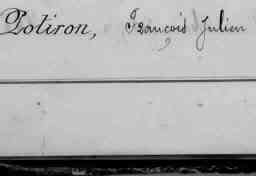 Potiron, François Julien